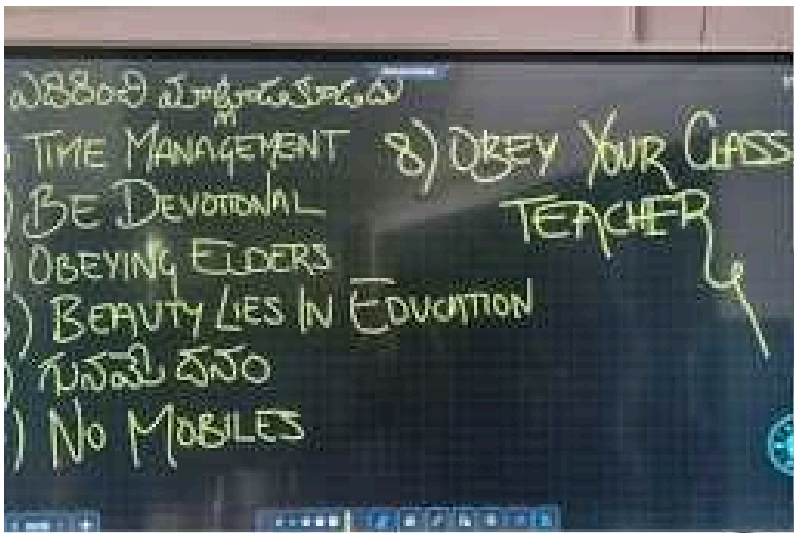 ఎదిరించి మాట్లాడకూడదు
TIME MANAGEMENT
BE DEVOTIONAL
OBEYING ELDERS
) BEAUTY LIES IN EDUCATION
) గునమే ధనం
) NO MOBILES
8) OBEY YOUR CLASS
TEACHER